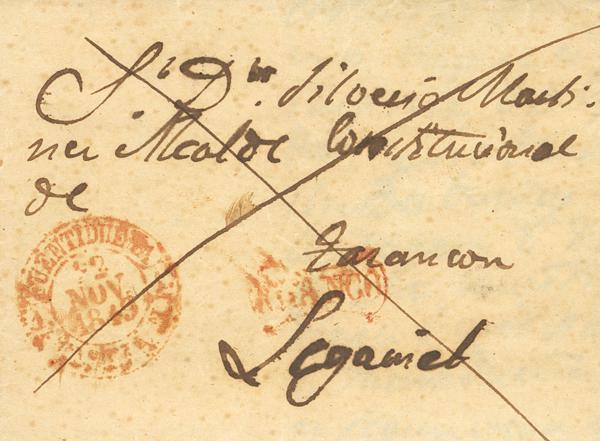 Sr. Dn. Silverio Marti-
nez Alcalde Constitucional
de
Tarancon
FUENTIDUEÑA
2
NOV
1845
FRANCO